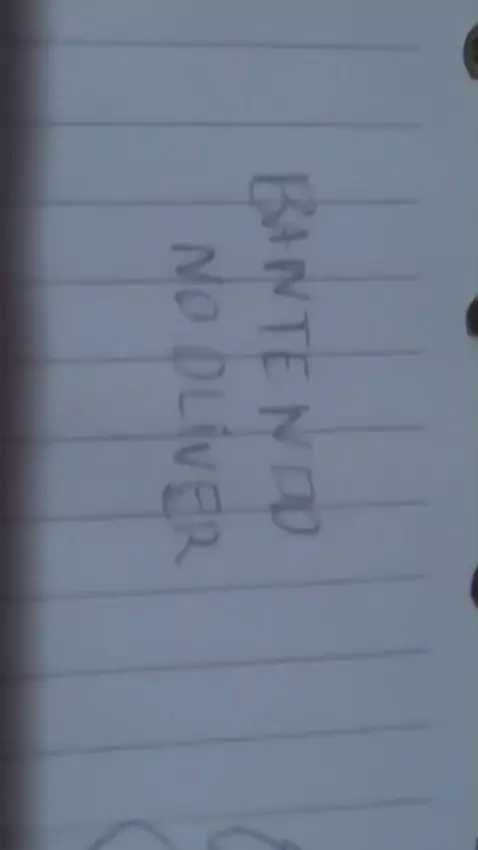 BANTENDO
NO OLiVER